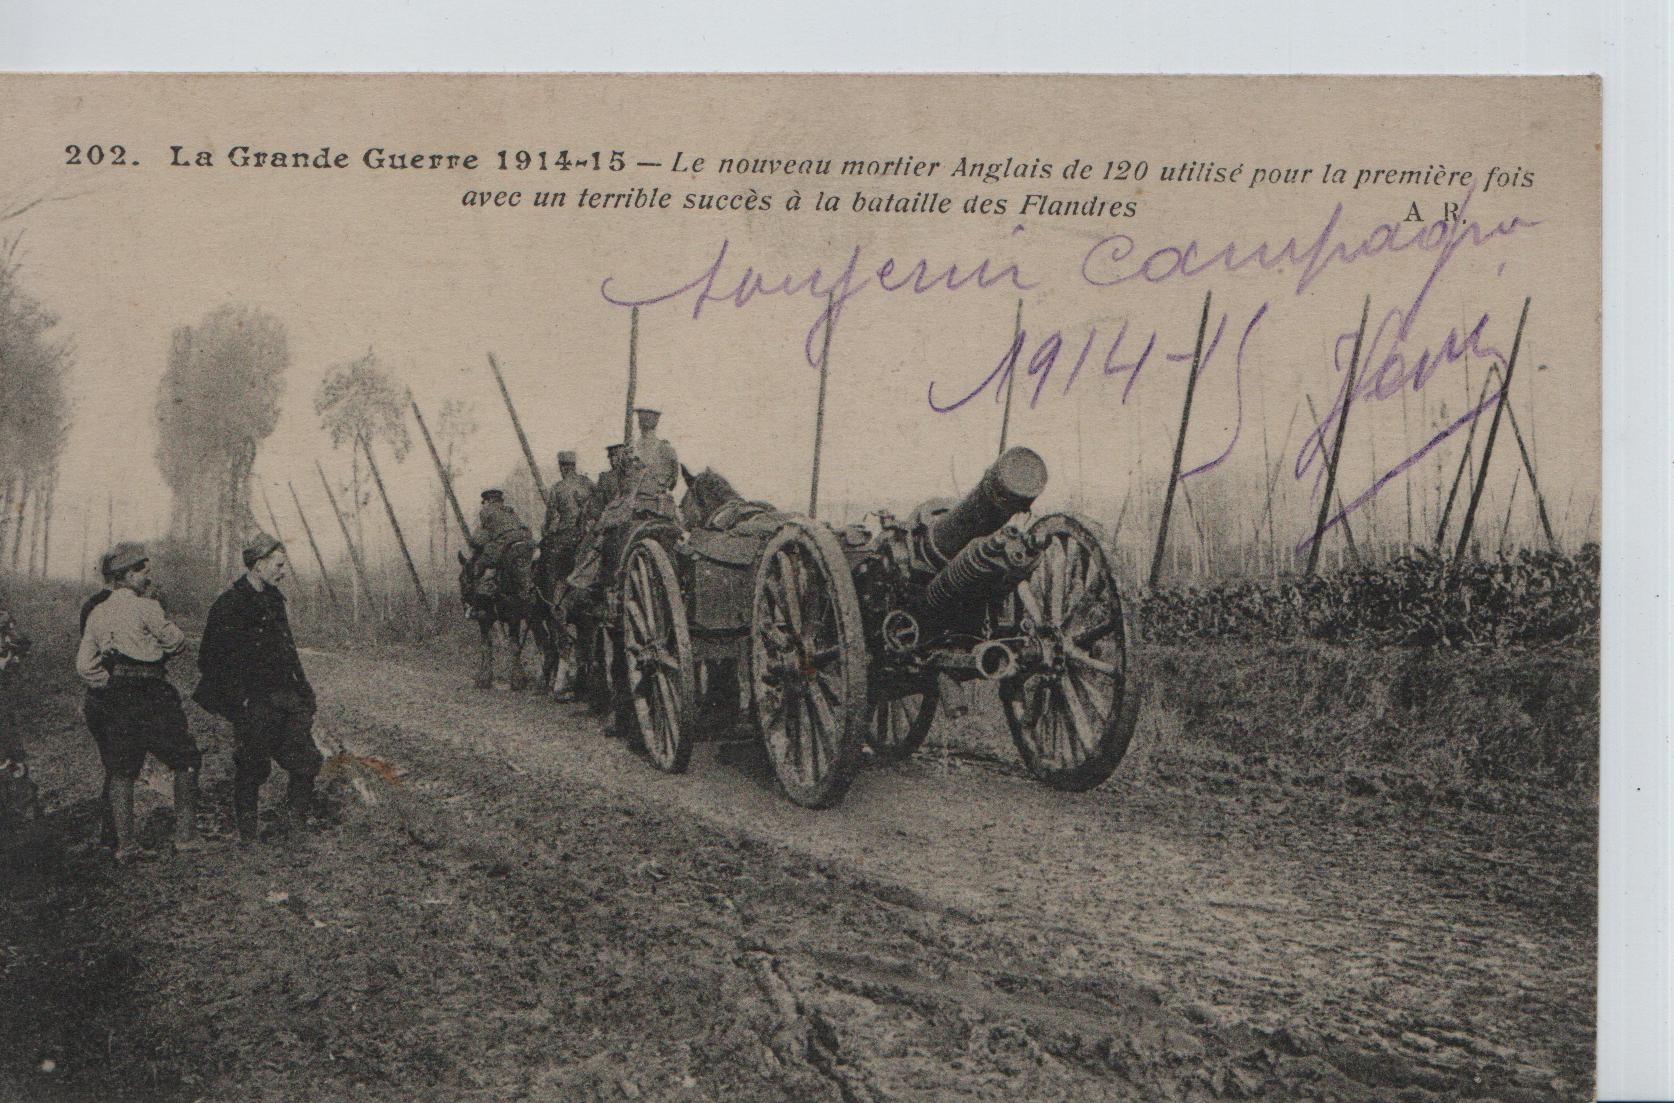 202. La Grande Guerre 1914-15 — Le nouveau mortier Anglais de 120 utilisé pour la première fois
avec un terrible succès à la bataille des Flandres
A R.
Souvenir Campagne
1914-15